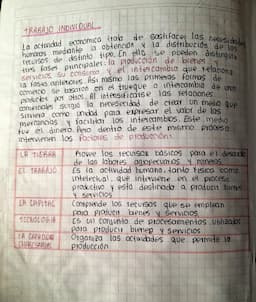 TRABAJO INDIVIDUAL
La actividad económica trata de satisfacer las necesidades
humanas mediante la obtención y la distribución de los
recursos de distinto tipo. En ella se pueden distinguir
tres fases principales: la producción de bienes y
servicios, su consumo y el intercambio que relaciona
las fases anteriores. Asi mismo las primeras formas de
comercio se basaron en el trueque o intercambio de unos
productos por otros. Al intensificarse las relaciones
comerciales surgio la necesidad de crear un medio que
sirviera como unidad para expresar el valor de las
mercancias y facilitar los intercambios. Este medio
fue el dinero. Pero dentro de este mismo proceso
intervienen los factores de producción.
LA TIERRA
Provee los recursos básicos para el desarrollo
de las labores agropecuarias y mineras.
EL TRABAJO
Es la actividad humana, tanto física como
intelectual, que interviene en el proceso
productivo y está destinado a producir bienes
y servicios
LA CAPITAL
Comprende los recursos que se emplean
para producir bienes y servicios.
TECNOLOGIA
Es un conjunto de procesamientos utilizados
para producir bienes y servicios
LA CAPACIDAD
Organiza las actividades que permite la
producción